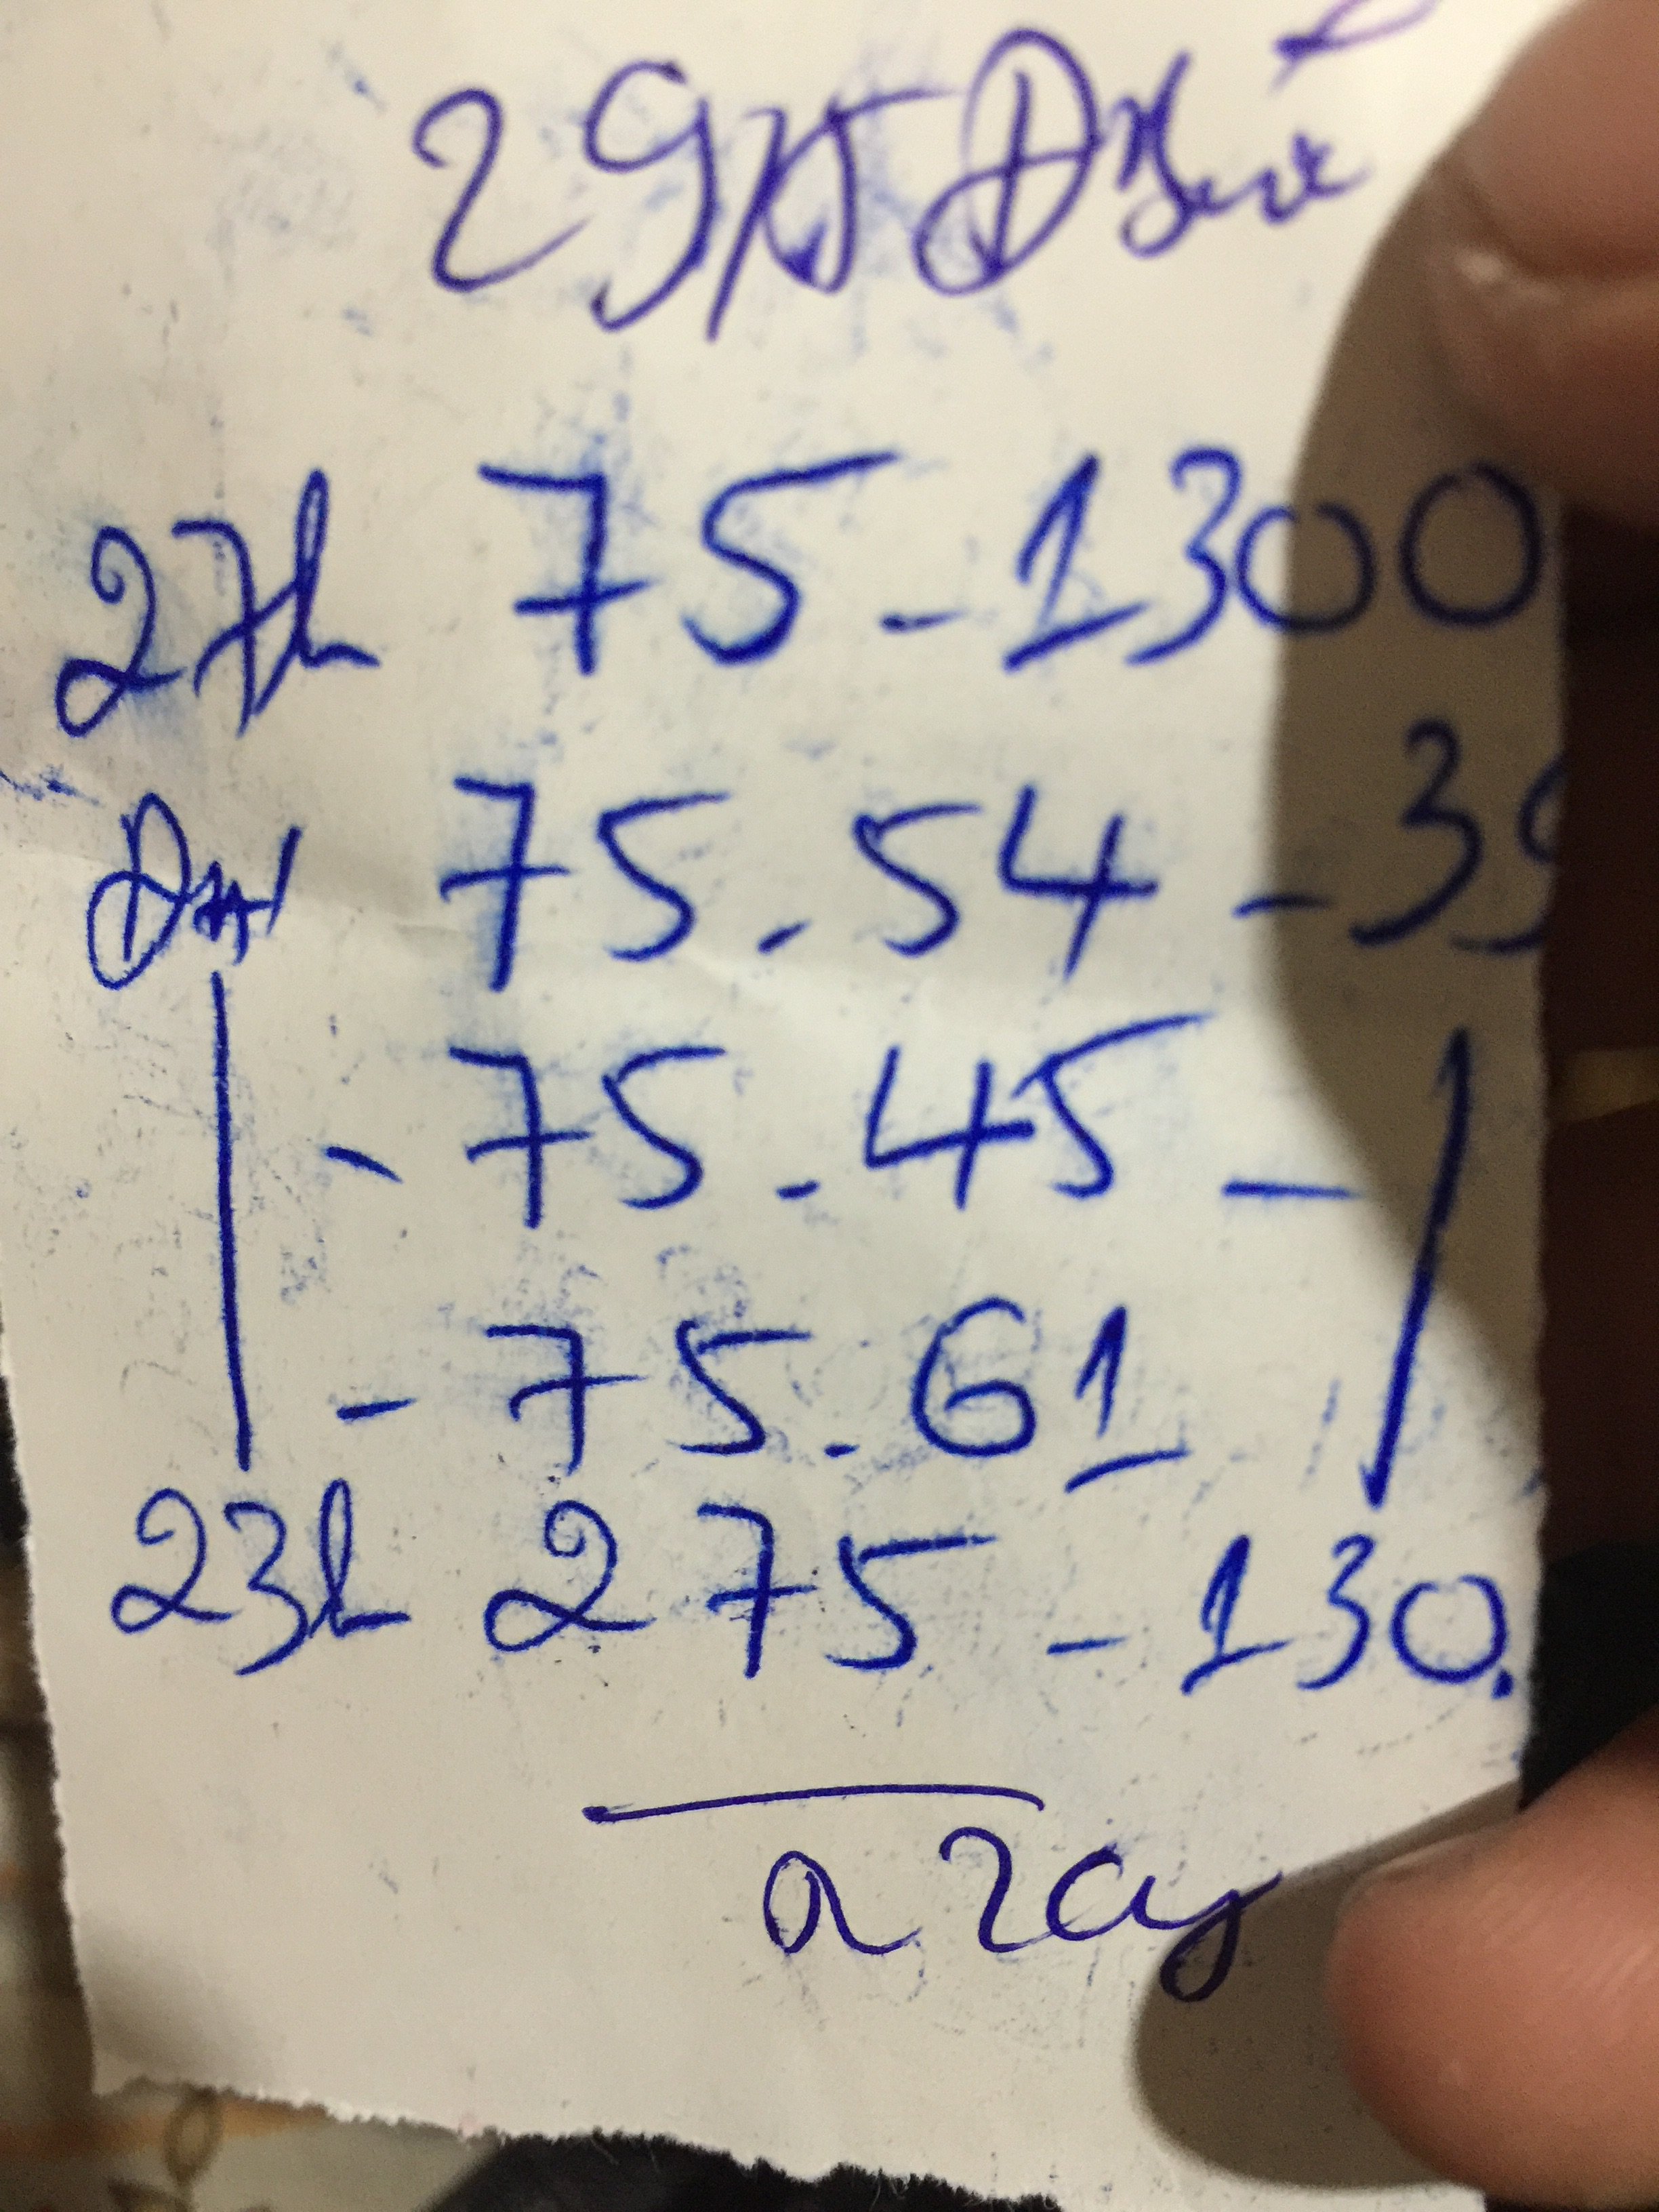 29/5
27h 75 - 1300
75.54 - 35
- 75.45 -
- 75.61
23h 275 - 130.
a 2ay